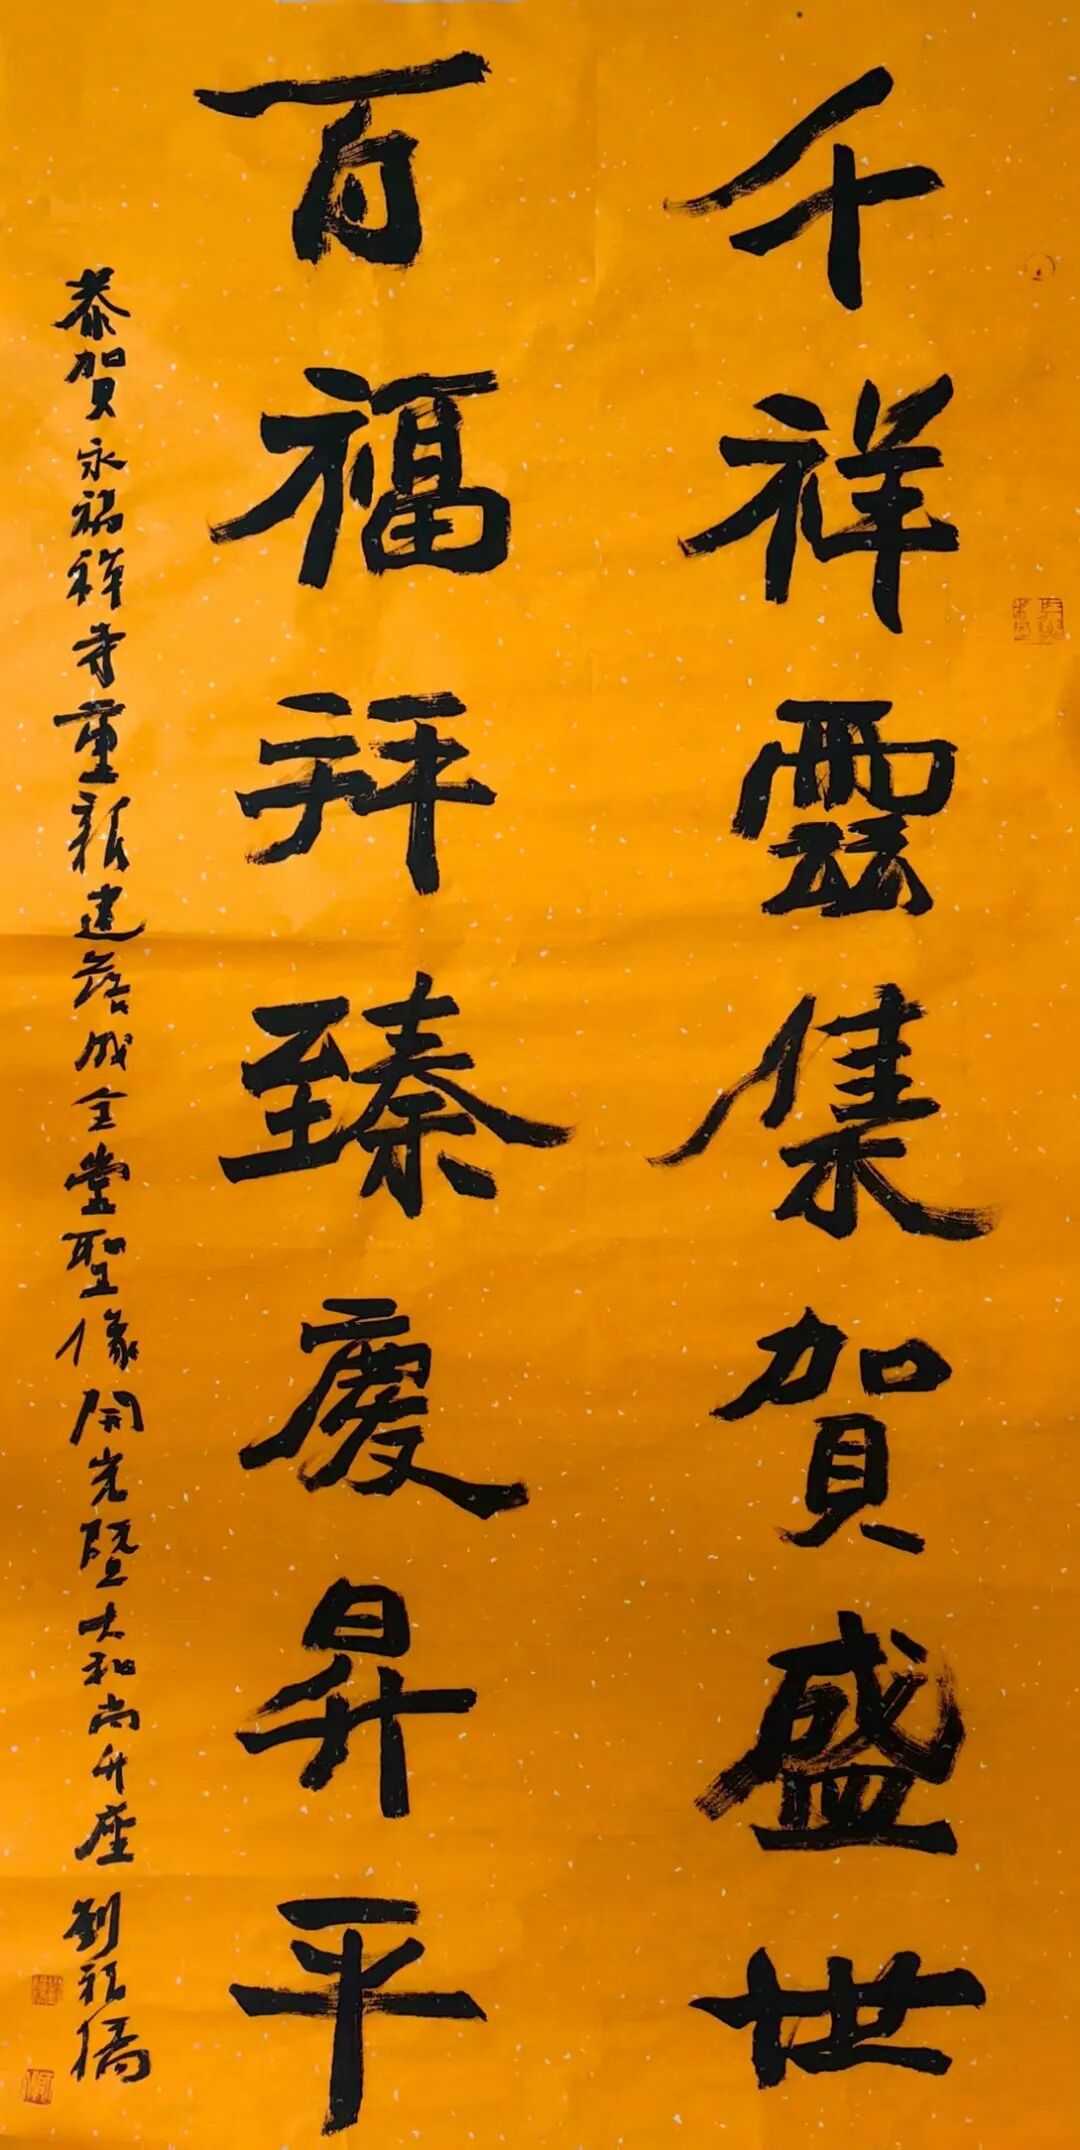 千祥雲集賀盛世
百福拜臻慶昇平
恭贺永福祥寺重新建落成全堂聖像開光暨大和尚升座 劉